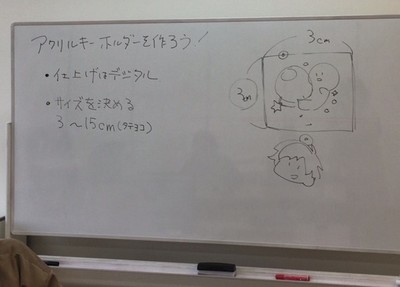 アクリルキーホルダーを作ろう！
・仕上げはデジタル
・サイズを決める
3～15cm(タテヨコ)
3cm
3cm